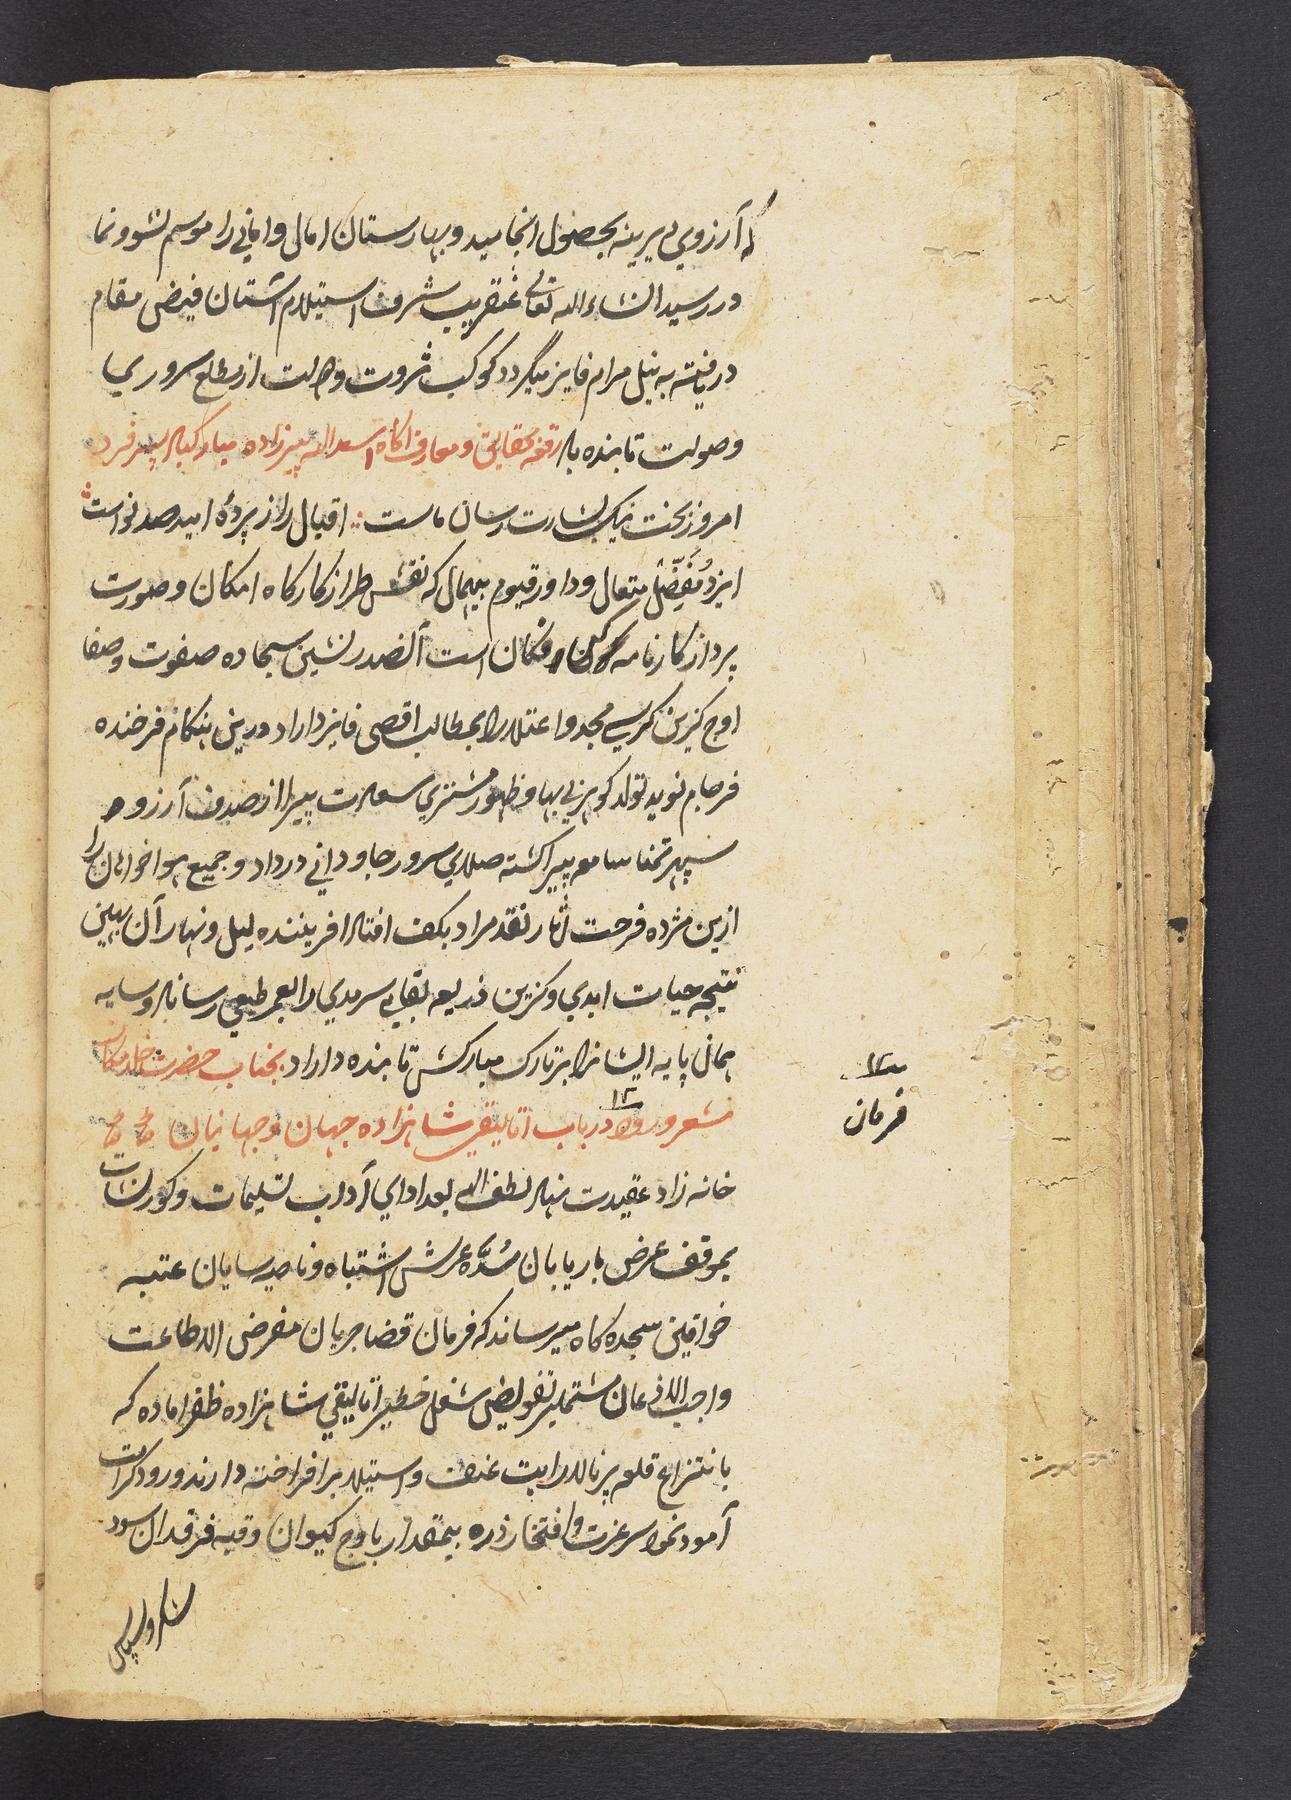 که آرزوی دیرینه بحصول انجامید و بهارستان امال وامانی را موسم نشوونما
در رسید انشاء الله تعالی عنقریب شرف استیلام آستان فیض مقام
دریافته به نیل مرام فایز میگردد کوکب ثروت و از مطلع سروری
وصولت تابنده باد رقعه بحقایق ومعارف اکاه اسد الله پیرزاده مبارکباد پسر فرد
امروز بخت نیک بشارت رسان ماست اقبال را ز پردهٔ امید صد نواست
ایزد مُفَضِّل متعال و داور قیوم بیهمال که نقش طراز کارکاه امکان وصورت
پرداز کارنامه کن فکان است آنصدرنشین سجاده صفوت وصفا
اوج کزین کرسی مجد واعتلا را بمطالب اقصی فایز داراد درین هنکام فرخنده
فرجام نوید تولد کوهر بی بها وظهور مشتری سعادت پیرا از صدف آرزو و
سپهر تمنا سامعه پیرا کشته صلای سرور جاودانی در داد وجمیع هواخواهان را
ازین مژده فرحت آثار نقد مراد بکف افتاد افریننده لیل ونهار آن بهین
نتیجه حیات ابدی وکزین ذریعه بقای سرمدی را بعمر طبیعی رساناد وسایه
همان پایه ایشانرا بر تارک مبارکش تابنده داراد بجناب حضرت خلد مکان
مشعر ورود ۱۲ در باب اتالیقی شاهزاده جهان وجهانیان
خانه زاد عقیدت نهاد لطف الله بعد ادای آداب تسلیمات وکورنشات
بموقف عرض باریابان سُدَّه عرش اشتباه وناصیه سایان عتبه
خواقین سجده کاه میرساند که فرمان قضا جریان مفرض الاطاعت
واجب الاذعان مشتملبر تفویض شغل خطیر اتالیقی شاهزاده ظفر اماده که
بانتزاع قلعه پرناله رایت عنف واستیلا برافراخته دارند ورود کرامت
آمود نموده سر عزت وافتخار ذره بیمقدار باوج کیوان وقبه فرقدان سود
شکر وسپاس
۱۲
فرمان